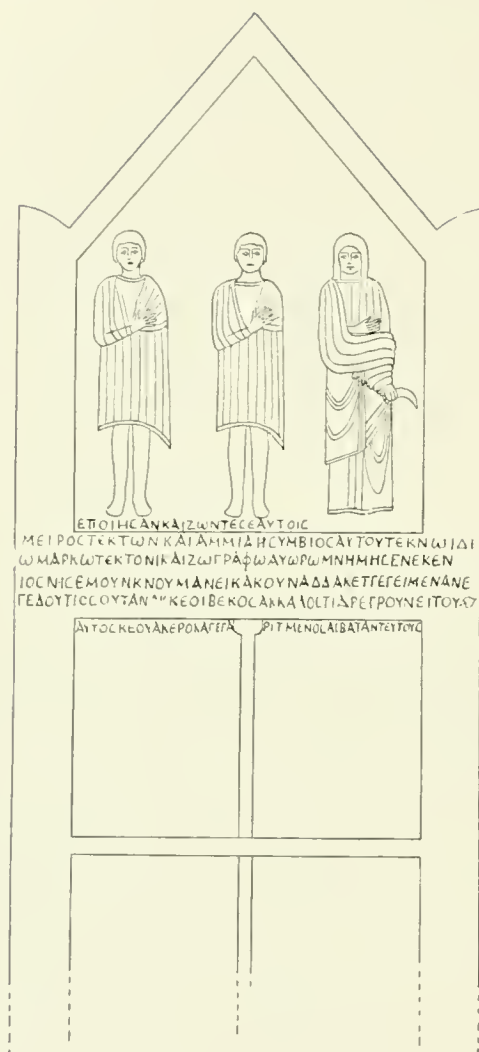 ΕΠΟΙΗCΑΝΚΑΙΖΩΝΤΕCΕΑΥΤΟΙC
ΜΕΙΡΟCΤΕΚΤΩΝΚΑΙΑΜΜΙΑΗCΥΜΒΙΟCΑΥΤΟΥΤΕΚΝΩΙΔΙ
ΩΜΑΡΚΩΤΕΚΤΟΝΙΚΑΙΖΩΓΡΑΦΩΑΥΩΡΩΜΝΗΜΗCΕΝΕΚΕΝ
ΙΟCΝΙCΕΜΟΥΝΚΝΟΥΜΑΝΕΙΚΑΚΟΥΝΑΔΔΑΚΕΤΓΕΓΕΙΜΕΝΑΝΕ
ΓΕΔΟΥΤΙΟCΟΥΤΑΝ ΚΕΟΙΒΕΚΟCΑΚΚΑΛΟCΤΙΔΡΕΓΡΟΥΝΕΙΤΟΥ
ΑΥΤΟCΚΕΟΥΑΚΕΡΟΚΑΓΕΓΑ ΡΙΤΜΕΝΟCΑΙΒΑΤΑΝΤΕΥΤΟΥC